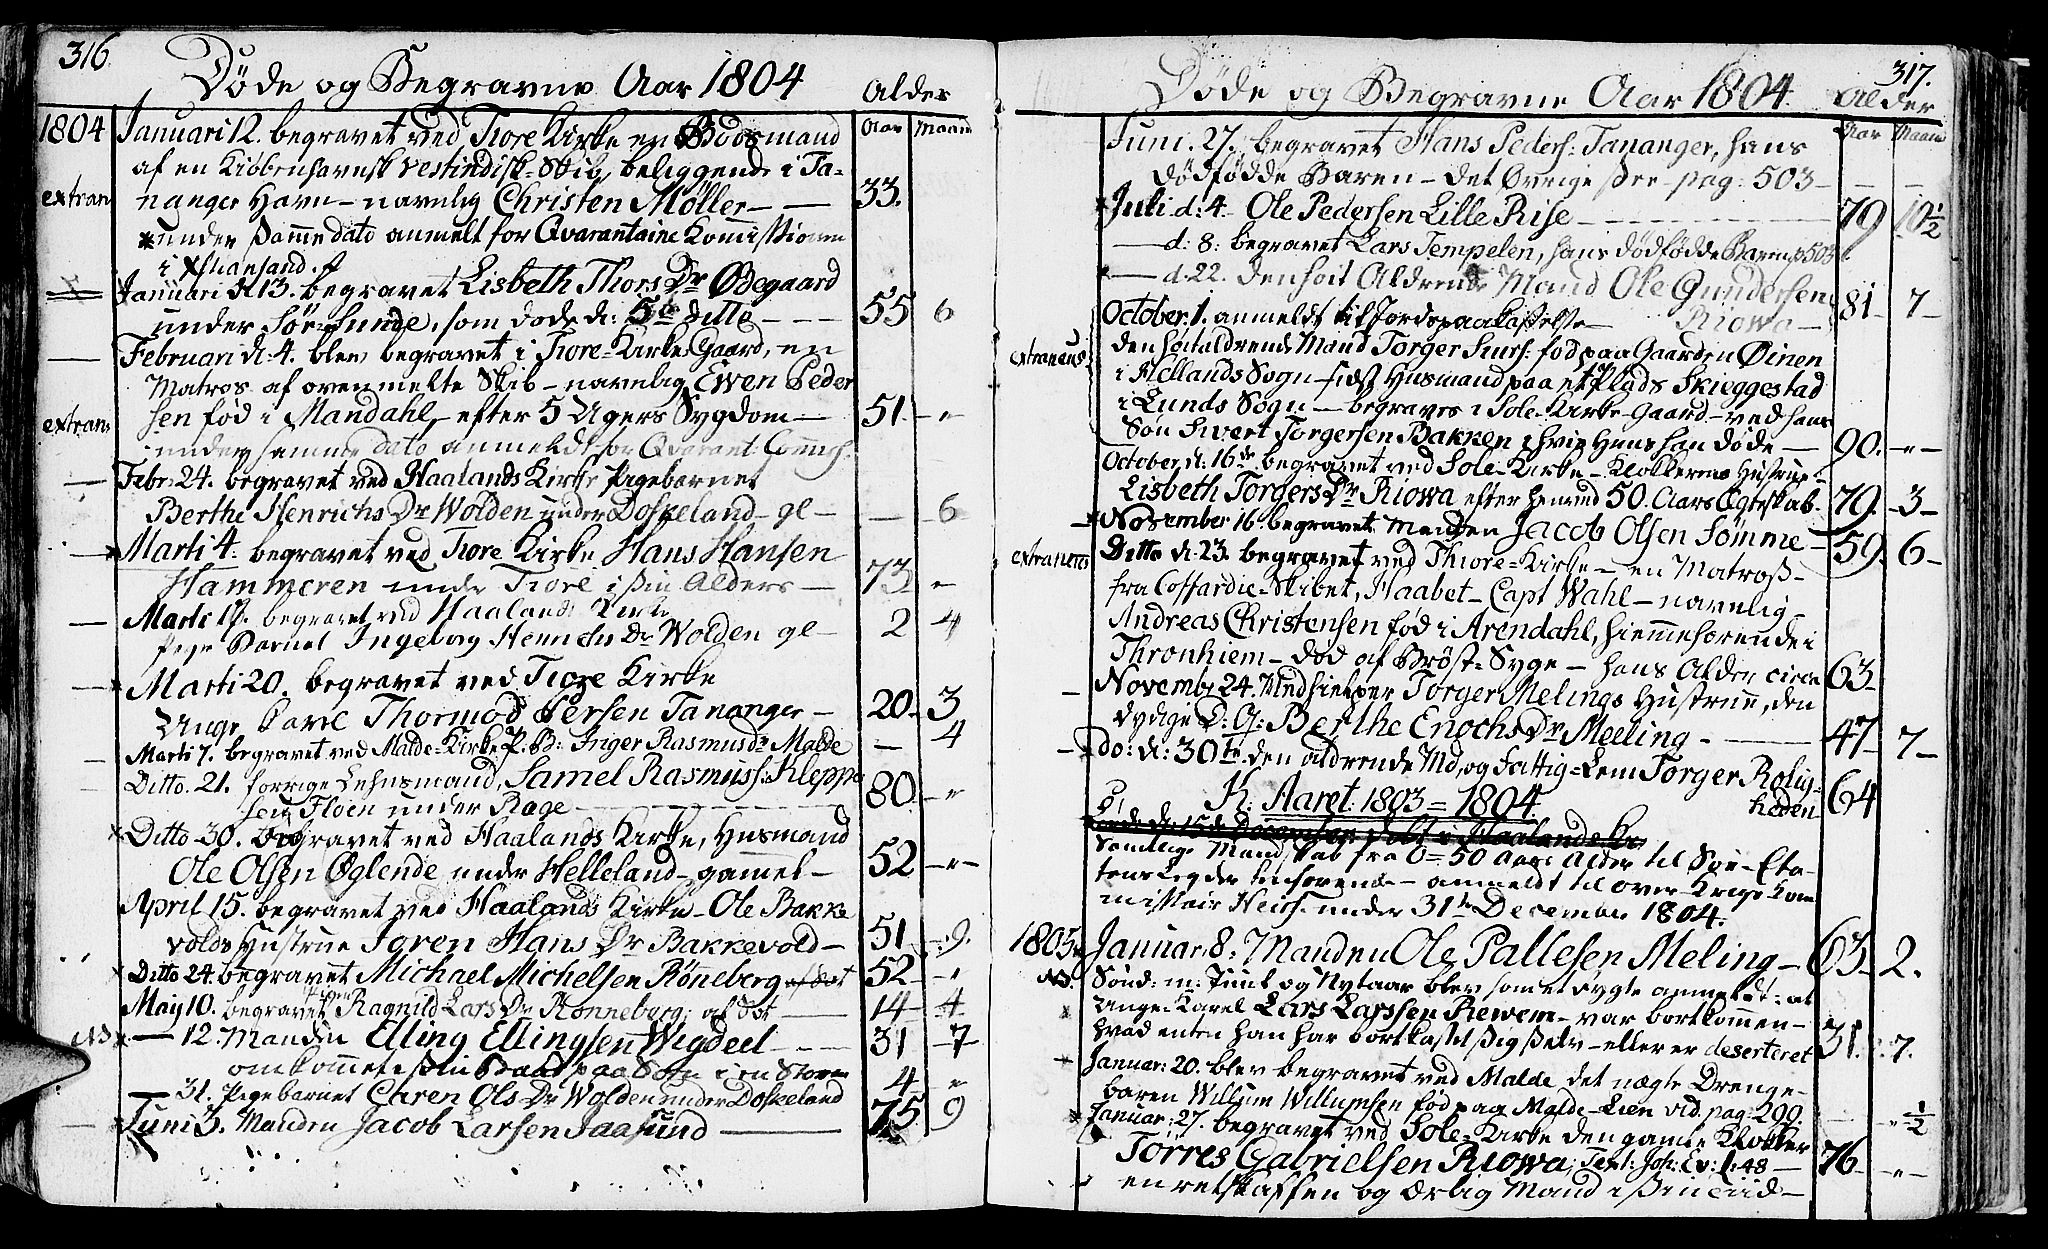 316.
Døde og Begravne Aar 1804
Alder
1804 Januari 12. begravet ved Tiore Kirke en Baadsmand
Aar Maan
af en Kiøbenhavnsk Vestindisk Skib, beliggende i Ta-
extran nanger Havn – navnlig Christen Möller – – 33.
under samme dato anmelt for Qvarantaine Komissionen
i Xstiansand.
Januari d. 13. begravet Lisbeth Thors Dr Ødegaard
under Sør-Sunde, som døde d: 5te ditto – – – 55 6
Februari d: 4. blev begravet i Tiore-Kirke Gaard, en
Matros af ovenmelte Skib – navnlig Ewen Peder
extran. sen fød i Mandahl, efter 5 Ugers Sygdom – 51. – "
under samme dato anmeldt for Qvarant: Commiss.
Febr: 24. begravet ved Haalands Kirke Pigebarnet
Berthe Henrichs Dr Wolden under Doskeland – gl – – 6
Marti 4. begravet ved Tiore Kirke Hans Hansen
Hammeren under Tiore i sin Alders – 73 "
Marti begravet ved Haalands Kirke
Pige Barnet Ingeborg Henrichs Dr Wolden gl – 2 4
Marti 20. begravet ved Tiore Kirke
Unge Karl Thormod Persen Tananger – 20. 3
Marti 7. begravet ved Malde-Kirke P. B: Inger Rasmusdr Malde – 4
Ditto. 21. forrige Lehnsmand, Samel Rasmuss: Kleppe
Floen under Rage – 80. – "
Ditto 30. begravet ved Haalands Kirke, Husmand
Ole Olsen Øglende under Helleland – gammel – 52 – " –
April 15. begravet ved Haalands Kirke – Ole Bakke
volds Hustrue Joren Hans Dr Bakkevold – 51 – 9.
Ditto 24 begravet Michael Michelsen Röneberg 52 – "
Maij 10. begravet Ragnild Lars Dr Rönneberg; af Sot – 14 – 4
NB – 12. Manden Elling Ellingsen Wigdeel – – – 31 7
omkommet i sin Baad paa Søen i en Storm
– 31. Pigebarnet Caren Ols Dr Wolden under Doskeland 4 – "
Juni 3. Manden Jacob Larsen Jaasund – 75 9
317.
Døde og Begravne Aar 1804.
Alder
Aar Maan
Juni. 27. begravet Hans Peders: Tananger, hans
dødfødde Baren – det Øvrige see – pag: 503 – – –
Juli d: 4. Ole Pedersen Lille Rise – – – 79. 10½
– d: 8: begravet Lars Tempelen, hans dødfødde Baren p 503
– d. 22. den høit Aldrende Mand Ole Gundersen
Riowa – 81 7 –
October. 1. anmeldt til Jordspaakastelse –
extraneus den høitaldrende Mand Torger Siurs: fød paa Gaarden Øinen
i Hellands Sogn – sidst Husmand paa et Plads Skieggestad
i Lunds Sogn – begraves i Sole-Kirke-Gaard – ved hans
Søn Sivert Torgersen Bakken, hvis Huus han døde – 90. – " –
October, d: 16de begravet ved Sole-Kirke – Klokkerens Hustrue
Lisbeth Torgers Dr Riowa efter henved 50. Aars Egteskab. 79. 3 –
November 16 begravet Manden Jacob Olsen Sømme – 59. 6 –
extraneus Ditto d: 23. begravet ved Thiore-Kirke – en Matros –
fra Coffardie-Skibet, Haabet – Capt Wahl – navnlig –
Andreas Christensen fød i Arendahl, hiemmehørende i
Thronhiem – død af Bröst-Syge – hans Alder circa 63 –
Novembr 24. Medhielper Torger Melings Hustrue, den
dydige D: Q: Berthe Enochs Dr Meeling – – 47 7 –
do: d: 30te den aldrende Md. og Fattig-Lem Torger Rolig-
heden 64
K: Aaret 1803 = 1804
Samtlige Mandskab fra 0 = 50 Aars Alder til Søe-Eta-
tens Leg der henhørende – anmeldt til Over Krigs Kom
missair Heiss. under 31te December 1804.
1805 Januar. 8. Manden Ole Pallesen Meling – 63 – 2.
NB. Sönd: m: Juul og Nytaar blev som et rygte anmeldt: at
Unge Karel Lars Larssen Rewem – var bortkommen –
hvad enten han har bortkastet sig selv – eller er deserteret 31. 7.
Januar: 20. blev begravet ved Malde det nægte Drenge-
baren Willum Willumsen fød paa Malde-Lien vid. pag: 290. – " ½
Januar: 27. begravet ved Sole-Kirke den gamle Klokker
Törres Gabrielsen Riowa, Text: Joh: Ev: 1: 48 – 76 – " –
en retskaffen og Ærlig Mand i sin Tiid –